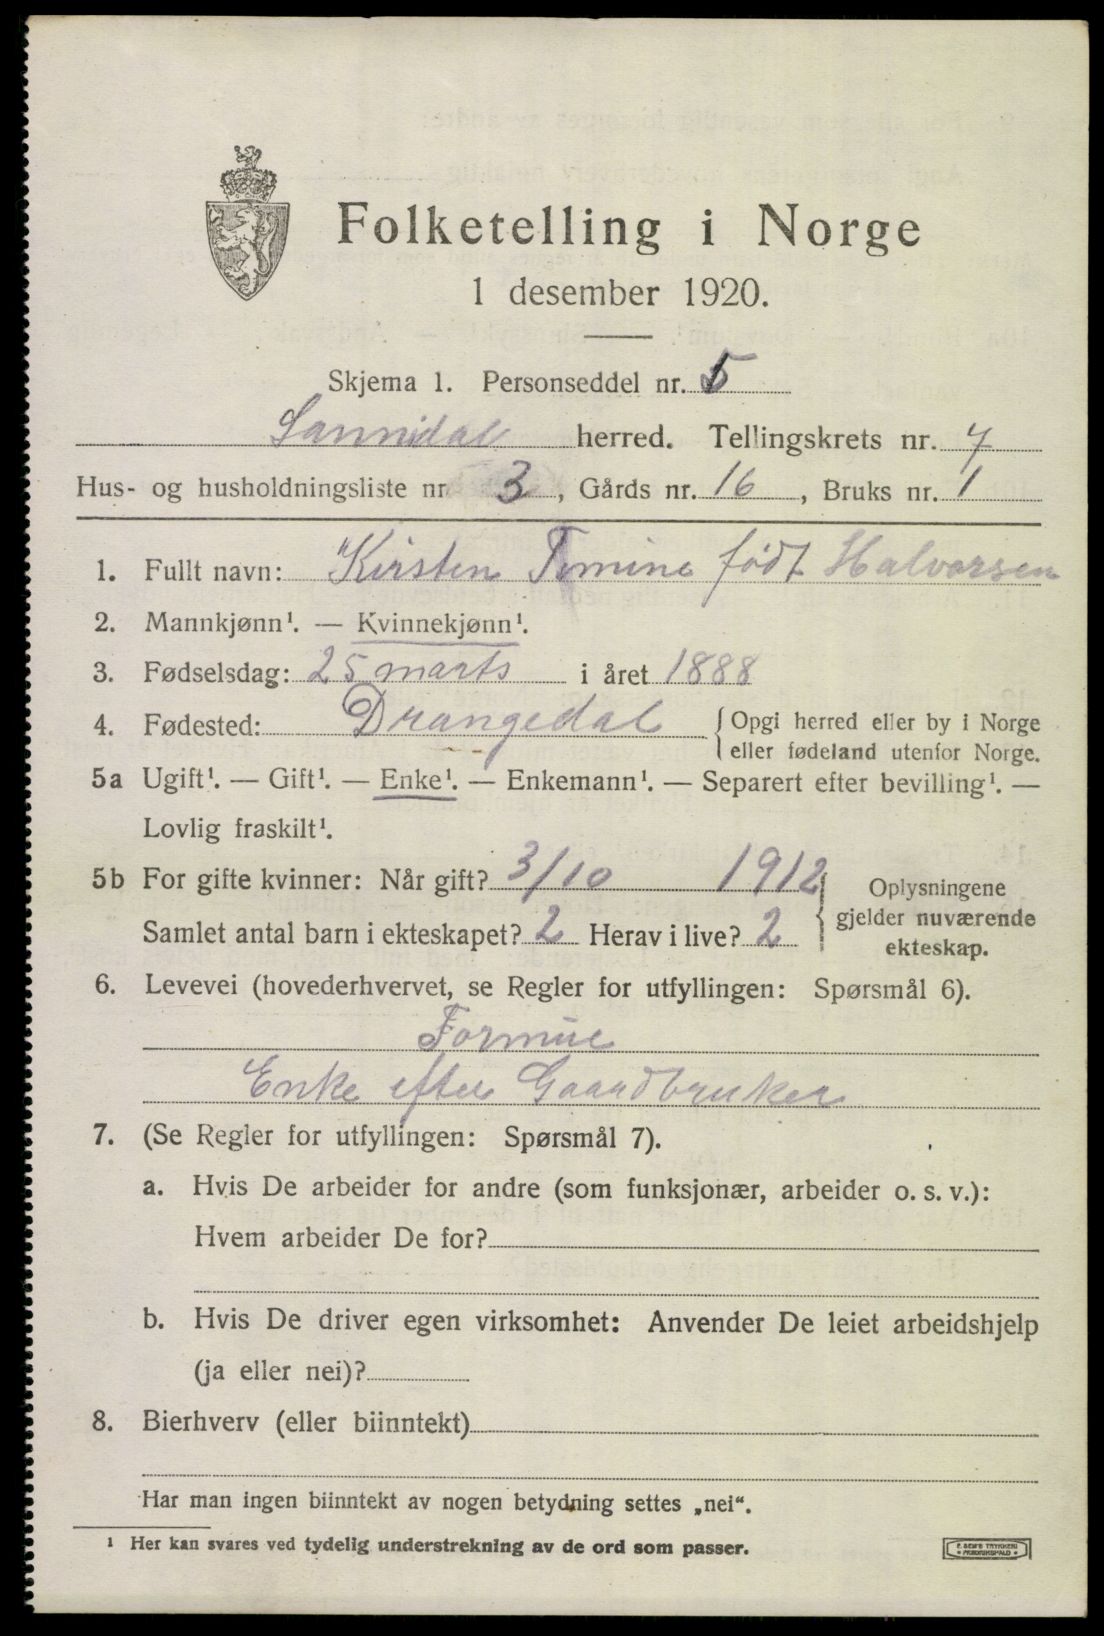 Folketelling i Norge
1 desember 1920.
Skjema 1. Personseddel nr. 5
Sannidal herred. Tellingskrets nr. 7
Hus- og husholdningsliste nr 3, Gårds nr. 16, Bruks nr. 1
1. Fullt navn: Kirsten Tomine født Halvorsen
2. Mannkjønn¹. — Kvinnekjønn¹.
3. Fødselsdag: 25 marts i året 1888
4. Fødested: Drangedal {Opgi herred eller by i Norge
eller fødeland utenfor Norge.
5a Ugift¹. — Gift¹. — Enke¹. — Enkemann¹. — Separert efter bevilling¹. —
Lovlig fraskilt¹.
5b For gifte kvinner: Når gift? 3/10 1912
Samlet antal barn i ekteskapet? 2 Herav i live? 2
} Oplysningene
gjelder nuværende
ekteskap.
6. Levevei (hovederhvervet, se Regler for utfyllingen: Spørsmål 6).
Formue
Enke efter Gaardbruker
7. (Se Regler for utfyllingen: Spørsmål 7).
a. Hvis De arbeider for andre (som funksjonær, arbeider o. s. v.):
Hvem arbeider De for?
b. Hvis De driver egen virksomhet: Anvender De leiet arbeidshjelp
(ja eller nei)?
8. Bierhverv (eller biinntekt)
Har man ingen biinntekt av nogen betydning settes „nei“.
¹ Her kan svares ved tydelig understrekning av de ord som passer.